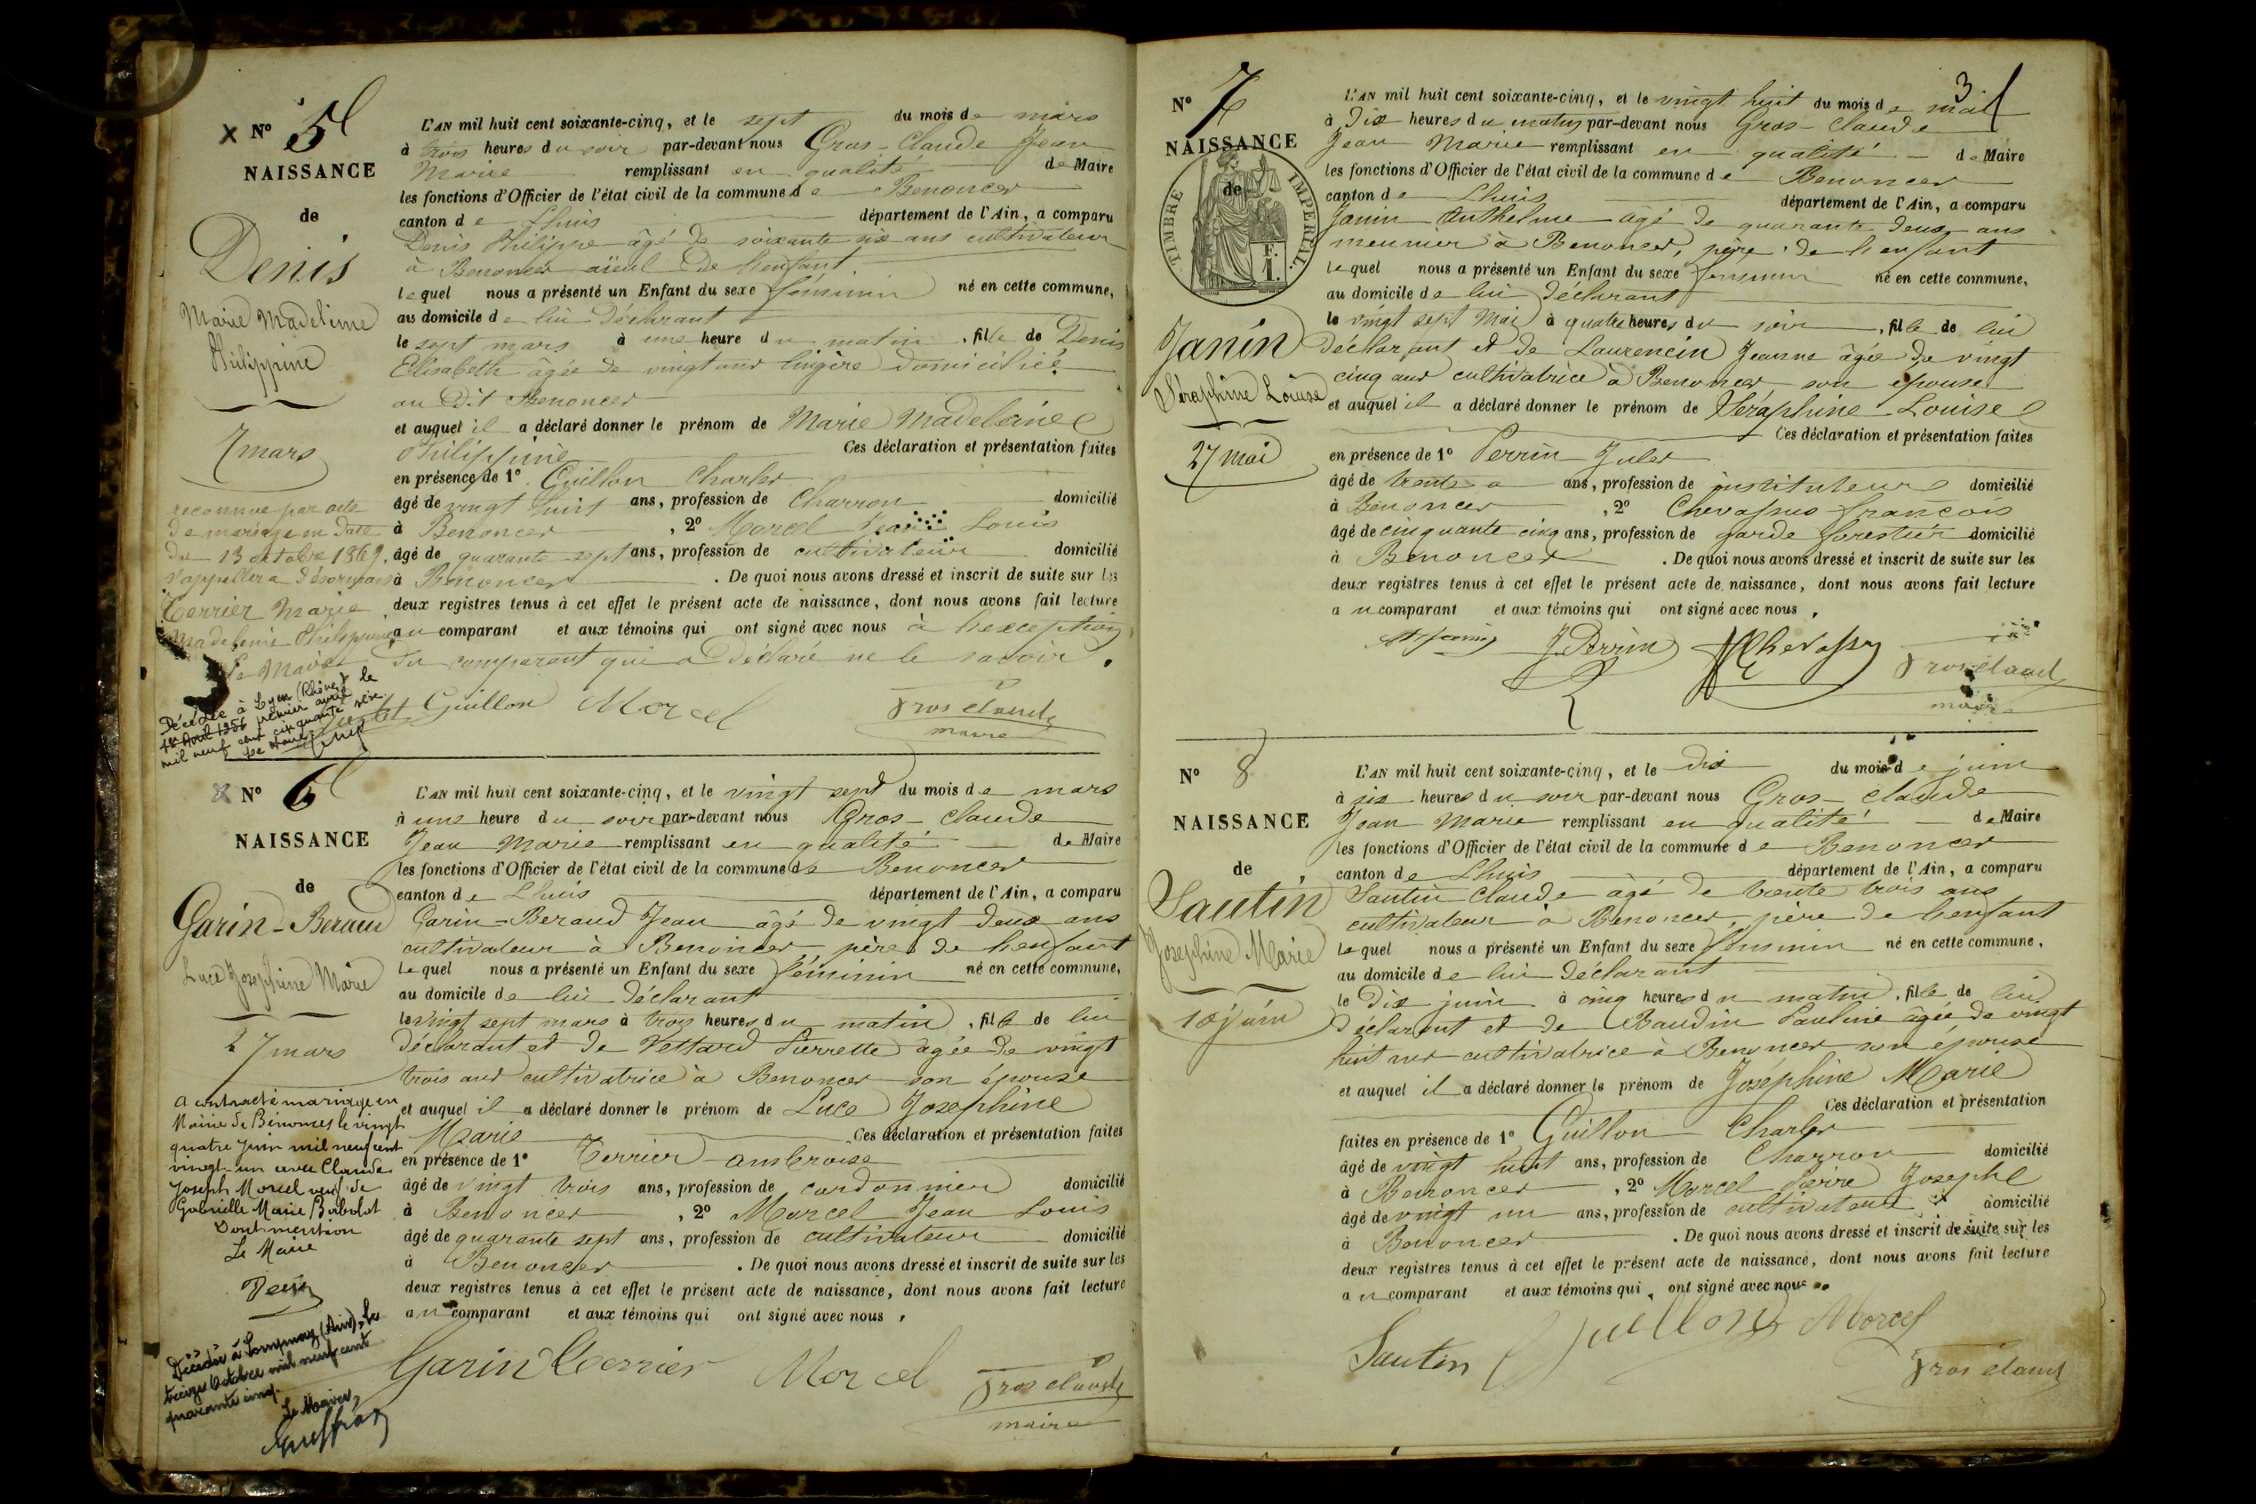 N° 5
NAISSANCE
de
Denis
Marie Madeleine
Philippine
7 mars
reconnue par acte
de mariage en date
du 13 octobre 1869.
s'appellera désormais
Terrier Marie
Madeleine Philippine
Le Maire
Décédée à Lyon (Rhône) le
1er Avril 1956 premier avril
mil neuf cent cinquante six
Le Maire
L'AN mil huit cent soixante-cinq, et le sept du mois de mars
à trois heures du soir par-devant nous Gros-Claude Jean
Marie remplissant en qualité de Maire
les fonctions d'Officier de l'état civil de la commune de Benonces
canton de Lhuis département de l'Ain, a comparu
Denis Philippe âgé de soixante six ans cultivateur
à Benonces aïeul de l'enfant
lequel nous a présenté un Enfant du sexe féminin né en cette commune,
au domicile de lui déclarant
le sept mars à une heure du matin, fille de Denis
Elisabeth âgée de vingt ans lingère domiciliée
au dit Benonces
et auquel il a déclaré donner le prénom de Marie Madeleine
Philippine Ces déclaration et présentation faites
en présence de 1° Guillon Charles
âgé de vingt huit ans, profession de Charron domicilié
à Benonces, 2° Morcel Jean Louis
âgé de quarante sept ans, profession de cultivateur domicilié
à Benonces. De quoi nous avons dressé et inscrit de suite sur les
deux registres tenus à cet effet le présent acte de naissance, dont nous avons fait lecture
au comparant et aux témoins qui ont signé avec nous à l'exception
du comparant qui a déclaré ne le savoir.
Guillon Morcel Gros Claude
maire
N° 6
NAISSANCE
de
Garin-Beraud
Luce Josephine Marie
27 mars
a contracté mariage en
Mairie de Bénonces le vingt
quatre Juin mil neuf cent
vingt-un avec Claude
Joseph Morcel veuf de
Gabrielle Marie Babolat
Dont mention
Le Maire
Denis
Décédée à Lompnaz (Ain), le
treize Octobre mil neuf cent
quarante cinq.
Le Maire,
L'AN mil huit cent soixante-cinq, et le vingt sept du mois de mars
à une heure du soir par-devant nous Gros-Claude
Jean Marie remplissant en qualité de Maire
les fonctions d'Officier de l'état civil de la commune de Benonces
canton de Lhuis département de l'Ain, a comparu
Garin-Beraud Jean âgé de vingt deux ans
cultivateur à Benonces père de l'enfant
Lequel nous a présenté un Enfant du sexe féminin né en cette commune,
au domicile de lui déclarant
le vingt sept mars à trois heures du matin, fille de lui
déclarant et de Vettard Pierrette âgée de vingt
trois ans cultivatrice à Benonces son épouse
et auquel il a déclaré donner le prénom de Luce Josephine
Marie Ces déclaration et présentation faites
en présence de 1° Terrier ambroise
âgé de vingt trois ans, profession de cordonnier domicilié
à Benonces, 2° Morcel Jean Louis
âgé de quarante sept ans, profession de cultivateur domicilié
à Benonces. De quoi nous avons dressé et inscrit de suite sur les
deux registres tenus à cet effet le présent acte de naissance, dont nous avons fait lecture
au comparant et aux témoins qui ont signé avec nous.
Garin Terrier Morcel Gros Claude
maire
3
N° 7
NAISSANCE
de
TIMBRE IMPÉRIAL
F.
1.
Janin
Séraphine Louise
27 mai
L'AN mil huit cent soixante-cinq, et le vingt huit du mois de mai
à Dix heures du matin par-devant nous Gros-Claude
Jean Marie remplissant en qualité de Maire
les fonctions d'Officier de l'état civil de la commune de Benonces
canton de Lhuis département de l'Ain, a comparu
Janin Anthelme âgé de quarante deux ans
meunier à Benonces, père de l'enfant
lequel nous a présenté un Enfant du sexe féminin né en cette commune,
au domicile de lui déclarant
le vingt sept Mai à quatre heures du soir, fille de lui
déclarant et de Laurencin Jeanne âgée de vingt
cinq ans cultivatrice à Benonces son épouse
et auquel il a déclaré donner le prénom de Séraphine Louise
Ces déclaration et présentation faites
en présence de 1° Perrin Jules
âgé de trente ans, profession de instituteur domicilié
à Benonces, 2° Chevassus françois
âgé de cinquante cinq ans, profession de garde forestier domicilié
à Benonces. De quoi nous avons dressé et inscrit de suite sur les
deux registres tenus à cet effet le présent acte de naissance, dont nous avons fait lecture
au comparant et aux témoins qui ont signé avec nous.
J. Perrin Chevassus Gros Claude
maire
N° 8
NAISSANCE
de
Sautin
Josephine Marie
10 juin
L'AN mil huit cent soixante-cinq, et le Dix du mois de juin
à six heures du soir par-devant nous Gros-Claude
Jean Marie remplissant en qualité de Maire
les fonctions d'Officier de l'état civil de la commune de Benonces
canton de Lhuis département de l'Ain, a comparu
Sautin Claude âgé de trente trois ans
cultivateur à Benonces, père de l'enfant
Lequel nous a présenté un Enfant du sexe féminin né en cette commune,
au domicile de lui déclarant
le Dix juin à cinq heures du matin, fille de lui
déclarant et de Baudin Pauline âgée de vingt
huit ans cultivatrice à Benonces son épouse
et auquel il a déclaré donner le prénom de Joséphine Marie
Ces déclaration et présentation
faites en présence de 1° Guillon Charles
âgé de vingt huit ans, profession de Charron domicilié
à Benonces, 2° Morcel Pierre Joseph
âgé de vingt un ans, profession de cultivateur domicilié
à Benonces. De quoi nous avons dressé et inscrit de suite sur les
deux registres tenus à cet effet le présent acte de naissance, dont nous avons fait lecture
au comparant et aux témoins qui ont signé avec nous
Sautin Guillon Morcel
Gros Claude